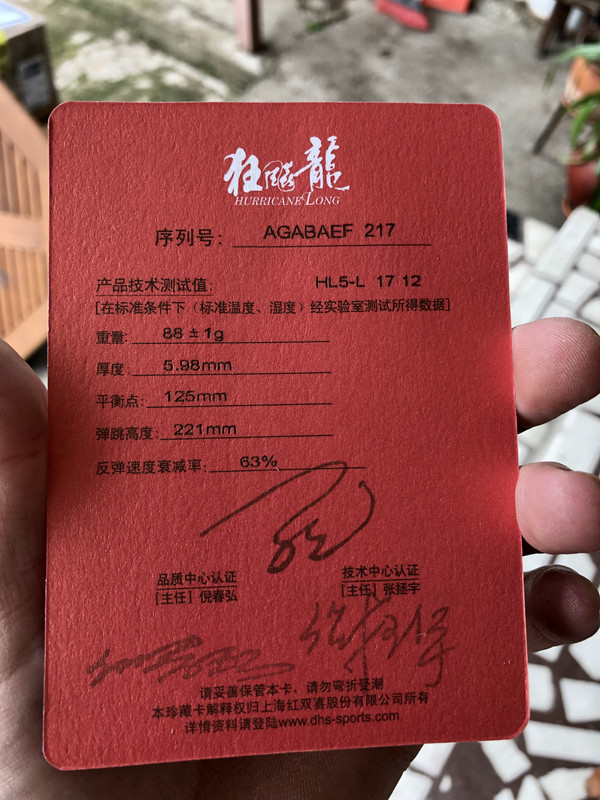 狂飚龍
HURRICANE LONG
序列号: AGABAEF 217
产品技术测试值: HL5-L 17 12
[在标准条件下（标准温度、湿度）经实验室测试所得数据]
重量: 88±1g
厚度: 5.98mm
平衡点: 125mm
弹跳高度: 221mm
反弹速度衰减率: 63%
品质中心认证 技术中心认证
[主任] 倪春弘 [主任] 张拯宇
请妥善保管本卡，请勿弯折受潮
本珍藏卡解释权归上海红双喜股份有限公司所有
详情资料请登陆www.dhs-sports.com